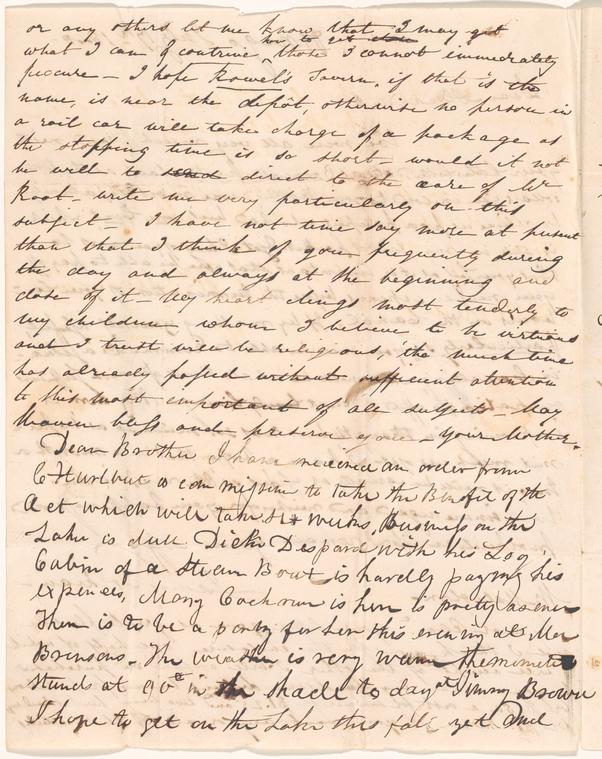 or any others let me know that I may get
what I can & contrive how to get those I cannot immediately
procure – I hope Rowel's Tavern, if that is the
name, is near the depôt, otherwise no person in
a rail car will take charge of a package as
the stopping time is so short – would it not
be well to send direct to the care of Mr
Root – write me very particularly on this
subject – I have not time say more at present
than that I think of you frequently during
the day and always at the beginning and
close of it – My heart clings most tenderly to
my children whom I believe to be virtuous
and I trust will be religious, tho much time
has already passed without sufficient attention
to this most important of all subjects – May
Heaven bless and preserve you – Your Mother.
Dear Brother I have received an order from
C Hurlbut a commission to take the Benefit of the
Act which will take six weeks, Business on the
Lake is dull Dick Despard with his Log
Cabin of a Steam Boat is hardly paying his
expences, Mary Cochrun is here is pretty as ever
There is to be a party for her this evening at Mr
Brunsons – The weather is very warm themometer
Stands at 90th in the shade to day at Jimmy Brown
I hope to get on the Lake this fall yet and